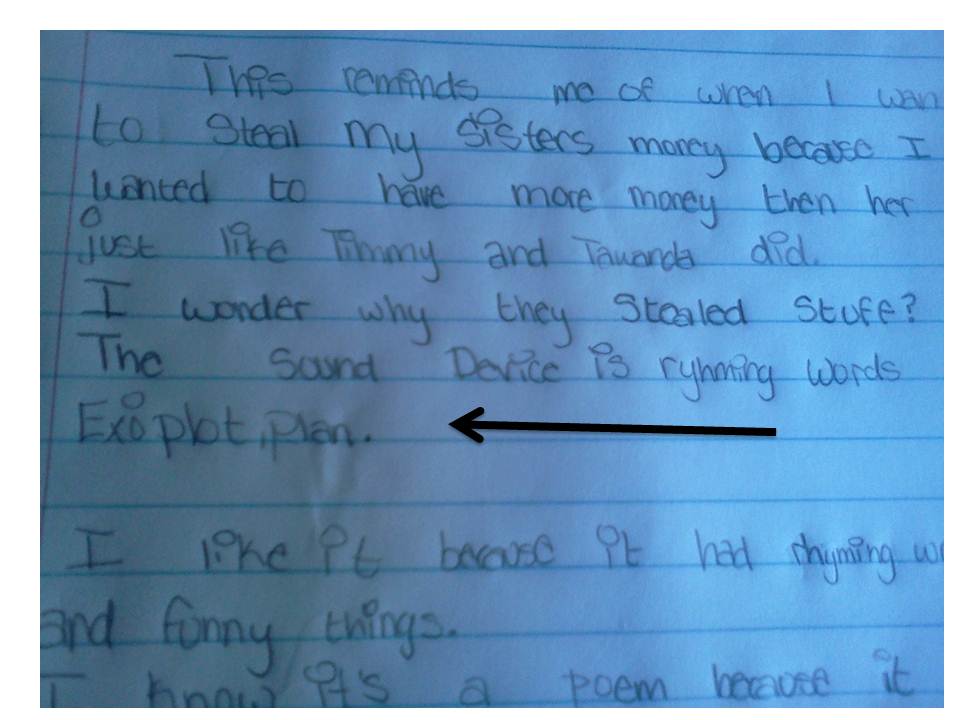 This reminds me of when I wan
to steal my sisters money because I
wanted to have more money then her
just like Timmy and Tawanda did.
I wonder why they Stealed Stuff?
The Sound Device is ryhming words
Ex: plot, plan.
I like it because it had rhyming w
and funny things.
I know it's a poem because it